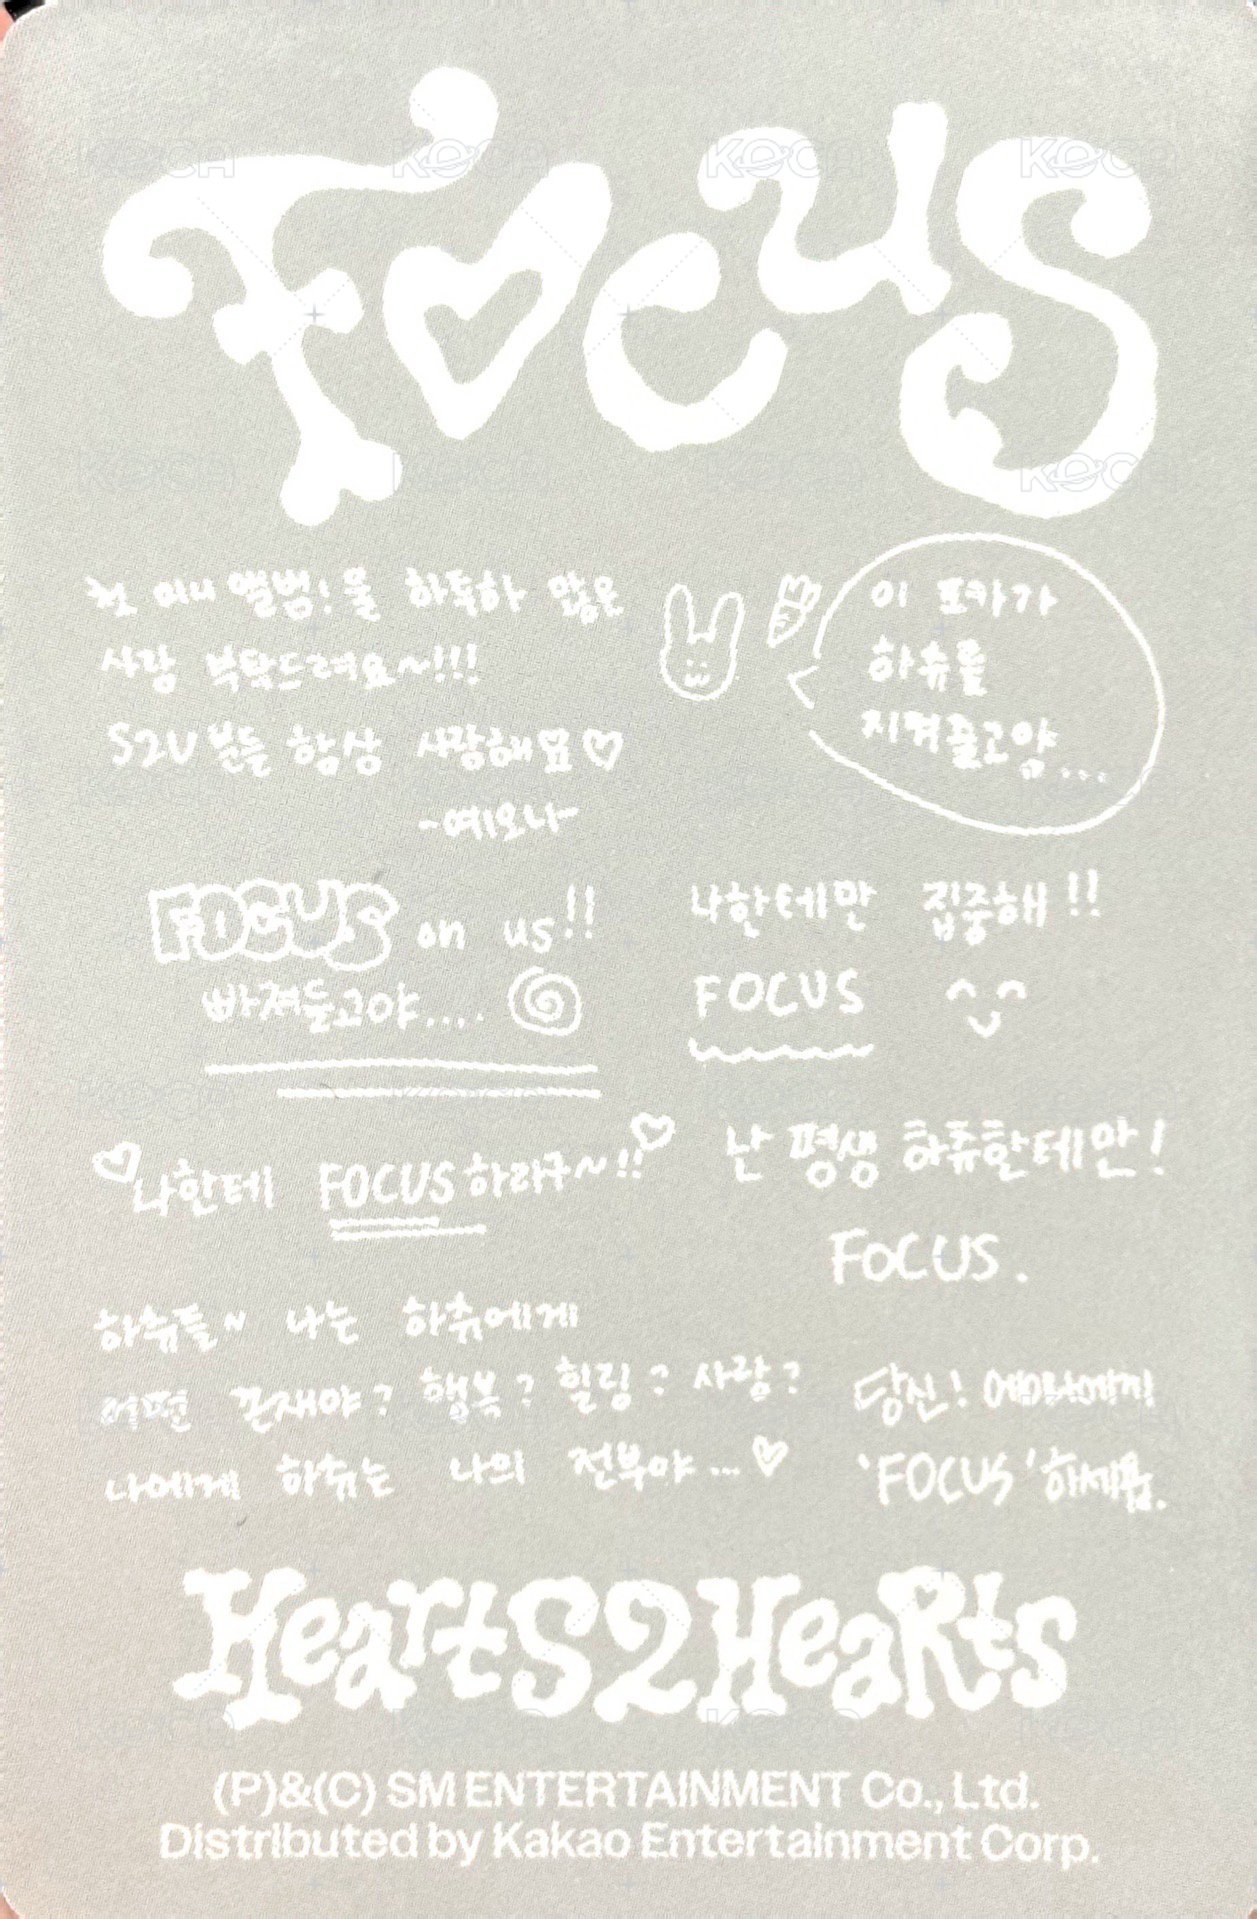 Focus
첫 미니 앨범! 물 하둑하 많은
사랑 부탁드려요~!!!
S2U 분들 항상 사랑해요♡
-예오나-
이 포카가
하츄를
지켜줄고얌...
FOCUS on us!!
빠져들고야....
나한테만 집중해!!
FOCUS
♡나한테 FOCUS하라구~!!♡
난 평생 하츄한테만!
FOCUS.
하츄들~ 나는 하츄에게
어떤 존재야? 행복? 힐링? 사랑?
나에게 하츄는 나의 전부야...♡
당신!
'FOCUS'하세욥.
Hearts2Hearts
(P)&(C) SM ENTERTAINMENT Co., Ltd.
Distributed by Kakao Entertainment Corp.
KOCA